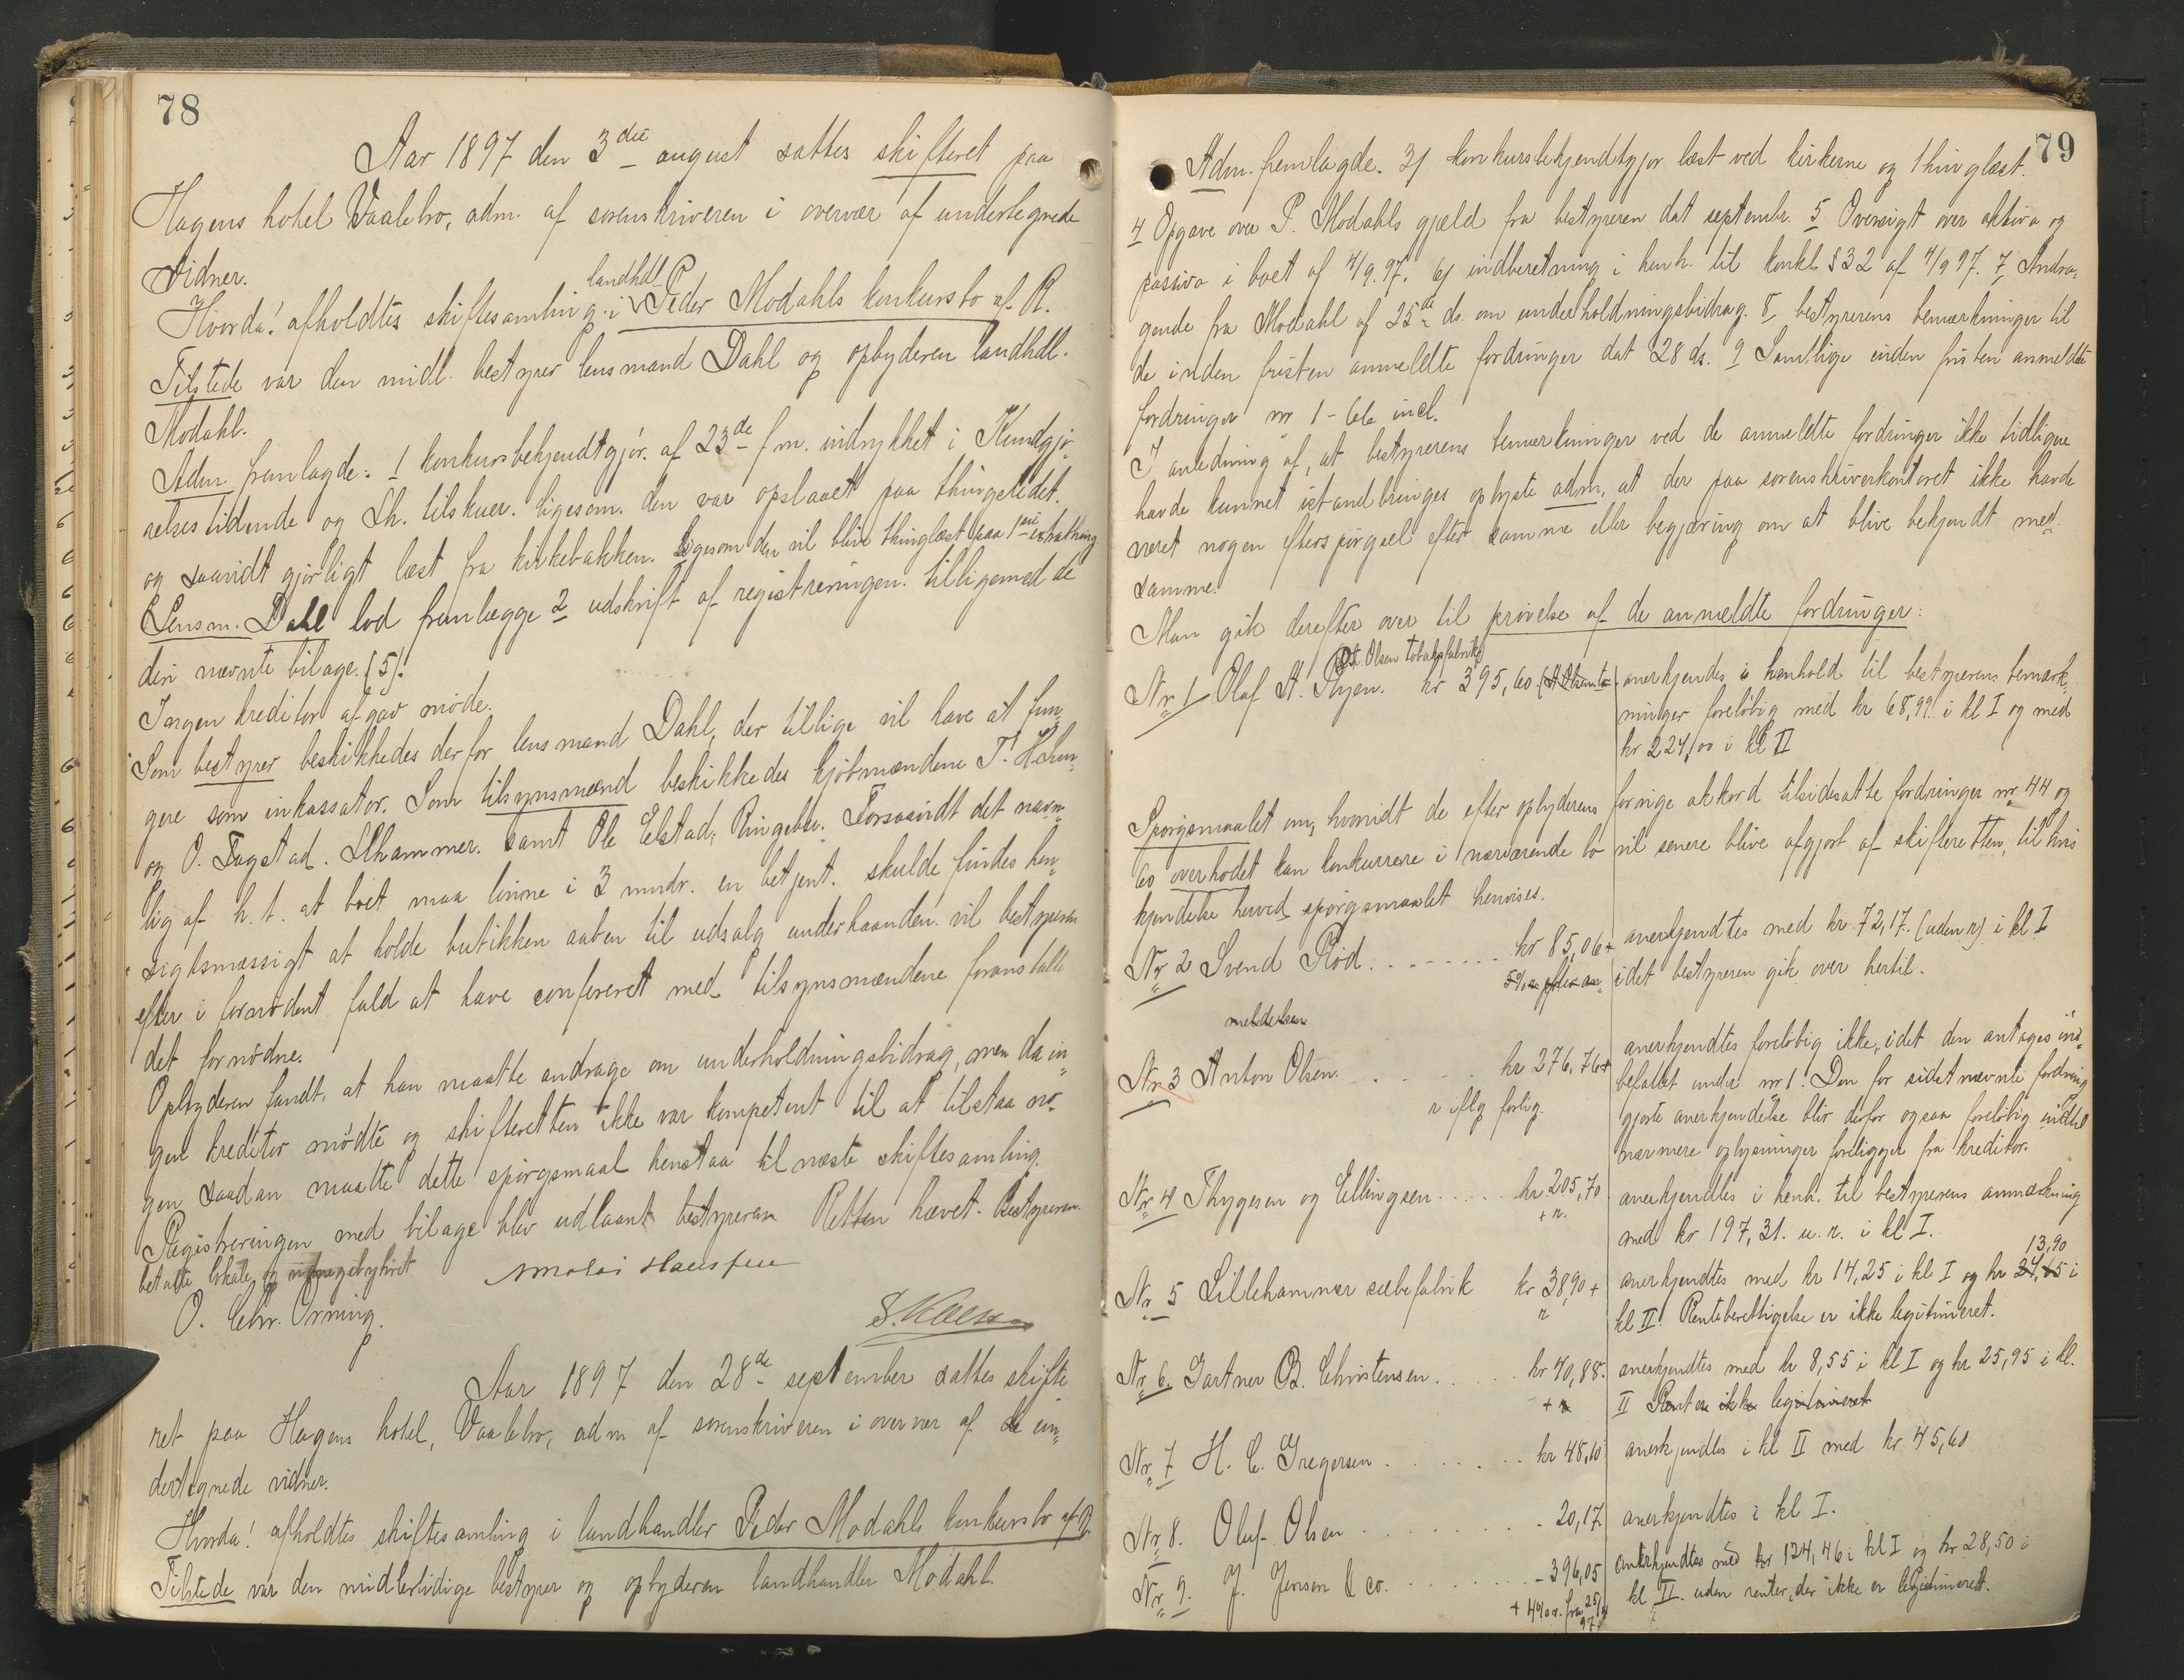 78
Aar 1897 den 3die august sattes skifteret paa
Hagens hotel Vaalebro, adm. af sorenskriveren i overvær af undertegnede
vidner.
Hvorda! afholdtes skiftesamling i landhdl. Peder Modahls konkursbo af R.
Tilstede var den midl. bestyrer lensmand Dahl og opbyderen landhdl.
Modahl.
Adm fremlagde: 1 konkursbekjendtgjør. af 23de f.m. indrykket i Kundgjø-
relsestidende og Lh. tilskuer. ligesom den var opslaaet paa thingstedet.
og saavidt gjørligt læst fra kirkebakken. Ligesom den vil blive thinglæst paa 1ste extrathing
Lensm. Dahl lod fremlægge 2 udskrift af registreringen. tilligemed de
deri nævnte bilage. (5).
Ingen kreditor afgav møde.
Som bestyrer beskikkedes derfor lensmand Dahl, der tillige vil have at fun-
gere som inkassator. Som tilsynsmænd beskikkedes kjøbmændene T.
og O. Fagstad. Lhammer. samt Ole Elstad, Ringebu. Forsaavidt det navn-
lig af h.t. at boet maa lønne i 3 mndr. en betjent. skulde findes hen-
sigtsmæssigt at holde butikken aaben til udsalg underhaanden. vil bestyreren
efter i fornødent fald at have confereret med tilsynsmændene foranstalte
det fornødne.
Opbyderen fandt, at han maatte andrage om underholdningsbidrag, men da in-
gen kreditor mødte og skifteretten ikke var kompetent til at tilstaa no-
gen saadan maatte dette spørgsmaal henstaa til næste skiftesamling.
Registreringen med bilage blev udlaant bestyreren Retten hævet. Bestyreren
betalte lokale og
O. Chr. Orning.
Aar 1897 den 28de september sattes skifte
ret paa Hagens hotel, Vaalebro, adm af sorenskriveren i overvær af de un-
dertegnede vidner.
Hvorda! afholdtes skiftesamling i landhandler Peder Modahls konkursbo af R.
Tilstede var den midlertidige bestyrer og opbyderen landhandler Modahl.
79
Adm. fremlagde. 3) konkursbekjendtgjør læst ved kirkerne og thinglæst.
4 Opgave over P. Modahls gjæld fra bestyreren dat septembr. 5 Oversigt over aktiva og
passiva i boet af 4/9.97. 6) indberetning i henh. til konkl §32 af 4/9 97. 7, Andra-
gende fra Modahl af 25de ds. om underholdningsbidrag. 8, bestyrerens bemærkninger til
de inden fristen anmeldte fordringer dat 28 ds. 9 Samtlige inden fristen anmeldte
fordringer nr 1 - 66 incl.
I anledning af, at bestyrerens bemærkninger ved de anmeldte fordringer ikke tidligere
havde kunnet istandbringes oplyste adm. at der paa sorenskriverkontoret ikke havde
været nogen efterspørgsel efter samme eller begjæring om at blive bekjendt med
samme.
Man gik derefter over til prøvelse af de anmeldte fordringer:
Nr 1 Olaf A. Ryen. kr 395,60 (A. Olsen tobaksfabrik) anerkjendes i henhold til bestyrerens bemærk-
ninger foreløbig med kr 68,99 i kl I og med
kr 224,00 i kl II
Spørgsmaalet om, hvorvidt de efter opbyderens forrige akkord tilsidesatte fordringer nr 44 og
60 overhodet kan konkurrere i nærværende bo vil senere blive afgjort af skifteretten, til hvis
kjendelse herved spørgsmaalet henvises.
Nr 2 Svend Rød. kr 85,06+ anerkjendtes med kr. 72,17. (uden r) i kl I
5% r. efter an- idet bestyreren gik over hertil.
meldelsen
Nr 3 Anton Olsen. kr 276,76+ anerkjendtes foreløbig ikke, idet den antages ind-
r iflg forlig. befattet under nr 1. Den for sidstnævnte fordring
gjorte anerkjendelse blir derfor ogsaa foreløbig indtil
nærmere oplysninger foreligger fra kreditor.
Nr 4 Thygesen og Ellingsen kr 205,70 anerkjendtes i henh. til bestyrerens anmærkning
+ r. med kr 197,31. u. r. i kl I.
Nr 5 Lillehammer sæbefabrik kr 38,90 + anerkjendtes med kr 14,25 i kl I og kr 13,90 i
r kl II. Renteberettigelse er ikke legitimeret.
Nr 6. Gartner B. Christensen kr 40,88. anerkjendtes med kr 8,55 i kl I og kr 25,95 i kl.
+ r II Renten ikke legitimeret
Nr 7 H. C. Gregersen kr 48,60 anerkjendtes i kl II med kr 45,60
Nr 8. Oluf Olsen - 20,17. anerkjendtes i kl I.
Nr 9. J. Jensen & co. - 396,05 anerkjendtes med kr 124,46 i kl I og kr 28,50 i
+ 4% r. fra kl II. uden renter, der ikke er legitimeret.